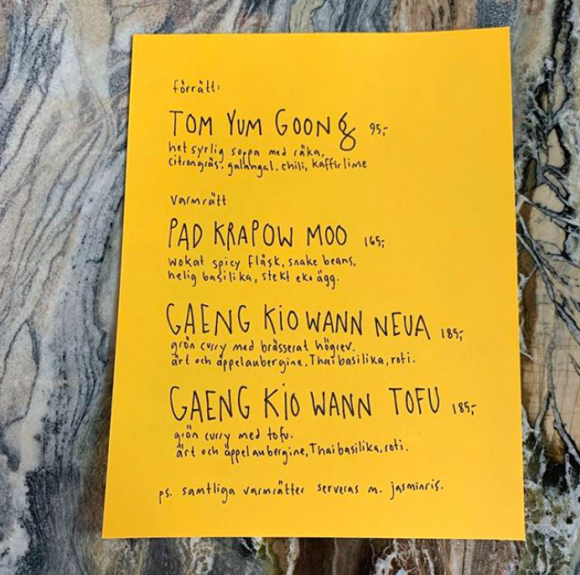 förrätt:
TOM YUM GOONG 95:-
het syrlig soppa med räka,
citrongräs, galangal, chili, kaffir lime
varmrätt
PAD KRAPOW MOO 165:-
wokat spicy fläsk, snake beans,
helig basilika, stekt eko ägg.
GAENG KIO WANN NEUA 185:-
grön curry med brässerat högrev.
ärt och äppelaubergine, Thai basilika, roti.
GAENG KIO WANN TOFU 185:-
grön curry med tofu.
ärt och äppelaubergine, Thai basilika, roti.
ps. samtliga varmrätter serveras m. jasminris.